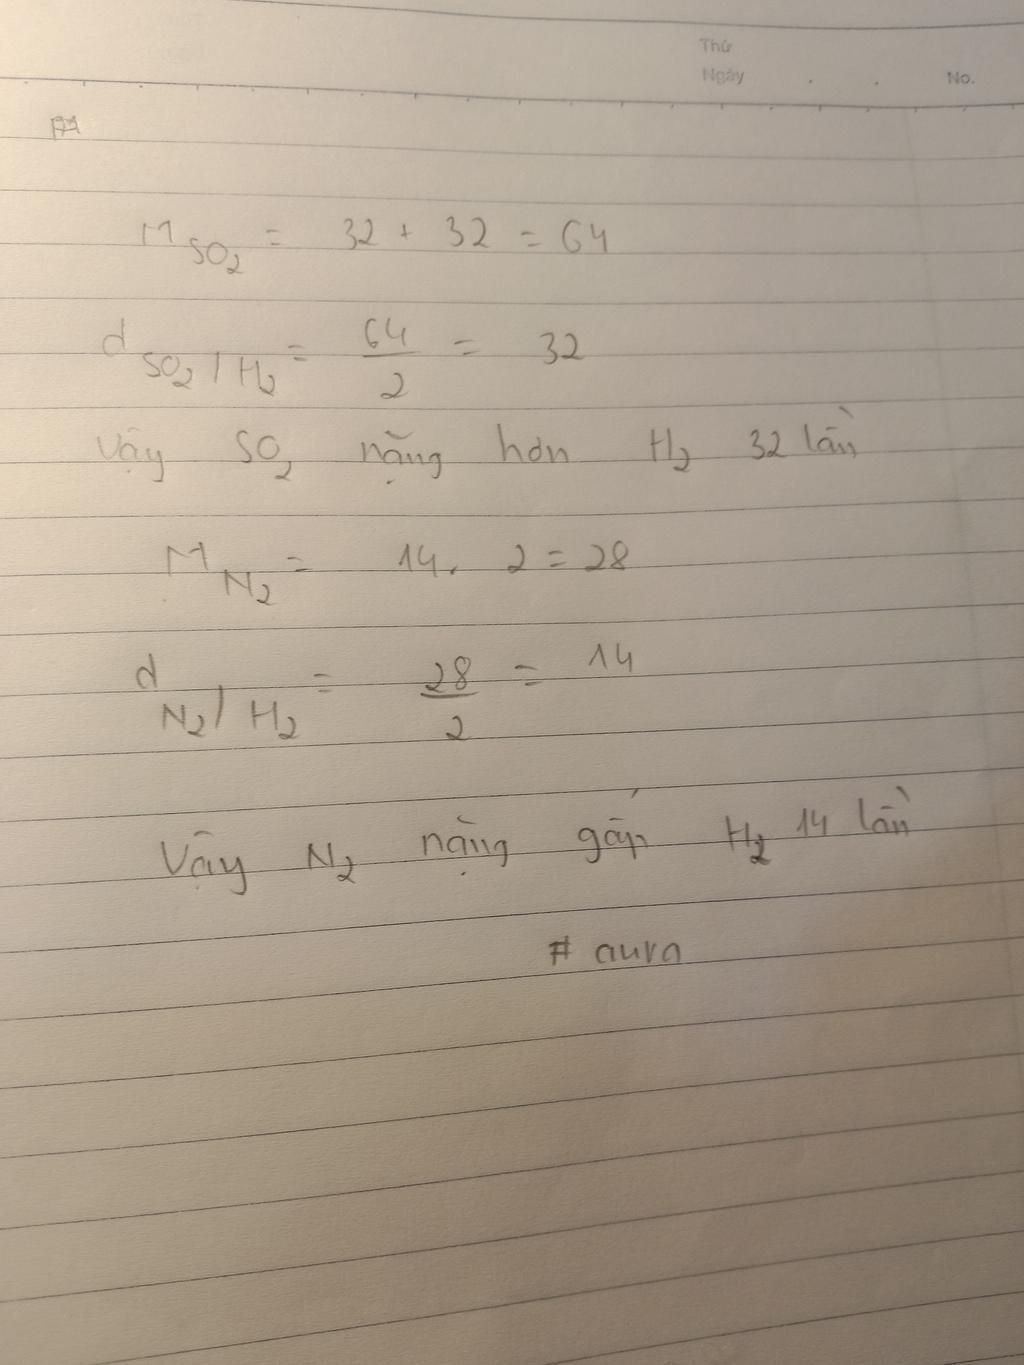 Thứ
Ngày . . No.
M SO2 = 32 + 32 = 64
d SO2 / H2 = 64/2 = 32
Vậy SO2 nặng hơn H2 32 lần
M N2 = 14 . 2 = 28
d N2 / H2 = 28/2 = 14
Vậy N2 nặng gấp H2 14 lần
# aura